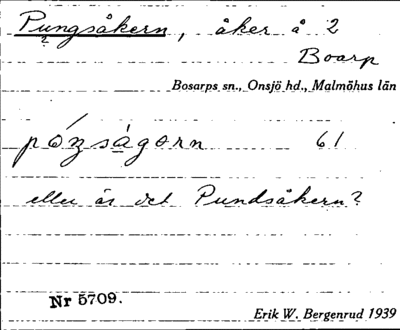 Pungsåkern, åker å 2
?
Boarp
Bosarps sn., Onsjö hd., Malmöhus län
61
eller är det Pundsåkern?
Nr 5709.
Erik W. Bergenrud 1939